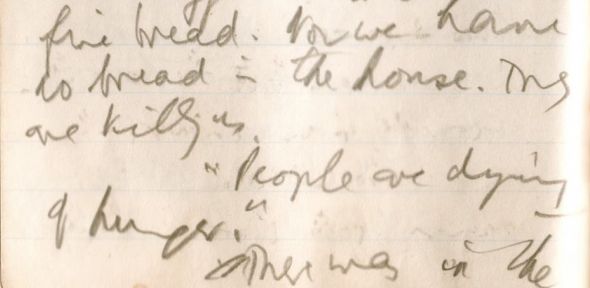 fine bread. Now we have
no bread in the house. They
are killing us.
"People are dying
of hunger."
There was in the